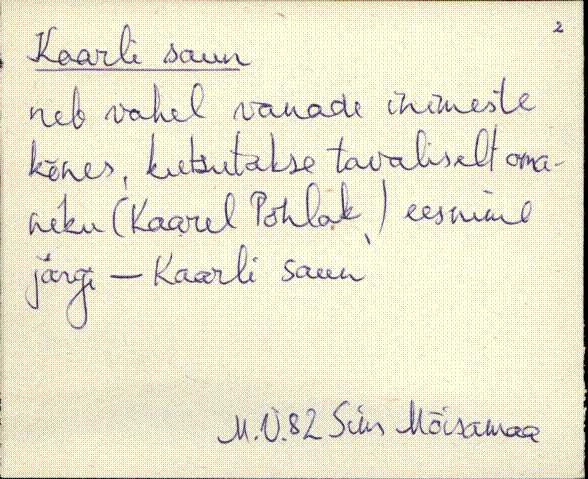 2
Kaarli saun
neb vahel vanade inimeste
kõnes, kutsutakse tavaliselt oma-
niku (Kaarel Pohlak) eesnime
järgi — Kaarli saun
M.V.82 Siim Mõisamaa